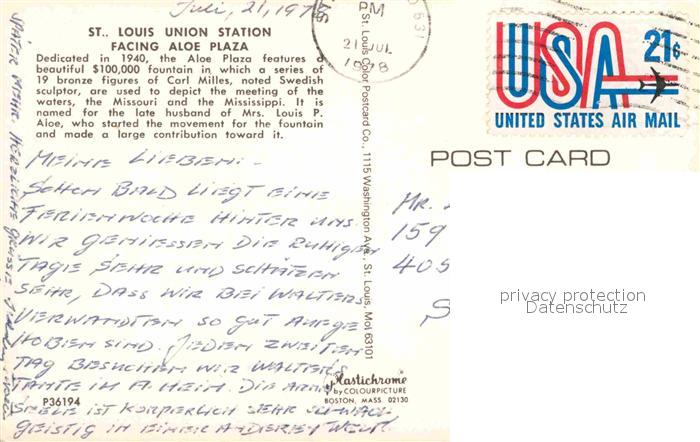 Juli, 21, 1978
ST.. LOUIS UNION STATION
FACING ALOE PLAZA
Dedicated in 1940, the Aloe Plaza features a
beautiful $100,000 fountain in which a series of
19 bronze figures of Carl Milles, noted Swedish
sculptor, are used to depict the meeting of the
waters, the Missouri and the Mississippi. It is
named for the late husband of Mrs. Louis P.
Aloe, who started the movement for the fountain
and made a large contribution toward it.
MEINE LIEBEN:-
SCHON BALD LIEGT EINE
FERIENWOCHE HINTER UNS.
WIR GENIESSEN DIE RUHIGEN
TAGE SEHR UND SCHÄTZEN
SEHR, DASS WIR BEI WALTERS
VERWANDTEN SO GUT AUFGE
HOBEN SIND. JEDEN ZWEITEN
TAG BESUCHEN WIR WALTER'S
TANTE IM A.HEIM. DIE ARME
SEELE IST KÖRPERLICH SEHR SCHWACH
GEISTIG IN EINER ANDEREN WELT.
SPÄTER MEHR HERZLICHE GRÜSSE
P36194
St. Louis Color Postcard Co., 1115 Washington Ave., St. Louis, Mo. 63101
Plastichrome
by COLOURPICTURE
BOSTON, MASS. 02130
PM
21 JUL
1978
USA 21¢
UNITED STATES AIR MAIL
POST CARD
MR.
159
405
S
privacy protection
Datenschutz